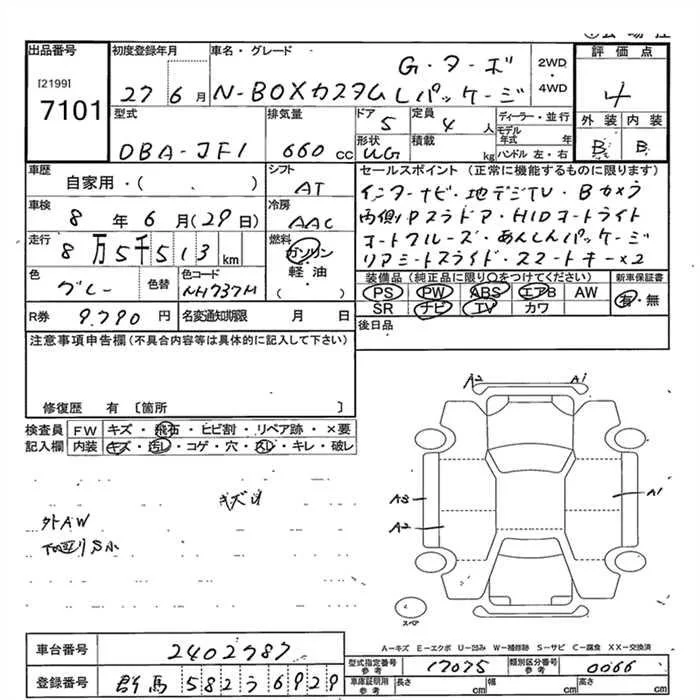 出品番号 初度登録年月 車名・グレード 2WD・4WD 評価点
[2199]
7101
27 6月 N-BOXカスタム G・ターボ Lパッケージ 4
型式 排気量 ドア 定員 ディーラー・並行 外装 内装
DBA-JF1 660 cc 5 4人 モデル年式 年 B B
形状 積載 ハンドル 左・右
UG kg
車歴 シフト セールスポイント (正常に機能するものに限ります)
自家用・( ) AT インターナビ・地デジTV・Bカメラ
車検 8年6月(29日) 冷房 AAC 両側Pスラドア・HIDオートライト
走行 8万5千513km 燃料 ガソリン オートクルーズ・あんしんパッケージ
軽油 リアシートスライド・スマートキー×2
( )
色 色替 色コード 装備品(純正品に限り○をつけてください) 新車保証書
グレー NH737M PS PW ABS エアB AW 有・無
SR ナビ TV カワ
R券 9.790円 名変通知期限 月 日 後日品
注意事項申告欄(不具合内容等は具体的に記入して下さい)
修復歴 有 〔箇所 〕
検査員 FW キズ・飛石・ヒビ割・リペア跡・×要
記入欄 内装 キズ・汚レ・コゲ・穴・スレ・キレ・破レ
A2 A1
キズ
外AW
S小
A3 A1
A2
スペア
A－キズ E－エクボ U－凹み W－補修跡 S－サビ C－腐食 XX－交換済
車台番号 2402787
型式指定番号 参考 17075 類別区分番号 参考 0066
登録番号 群馬 582 3 6929
車庫証明用 参考 長さ cm 幅 cm 高さ cm